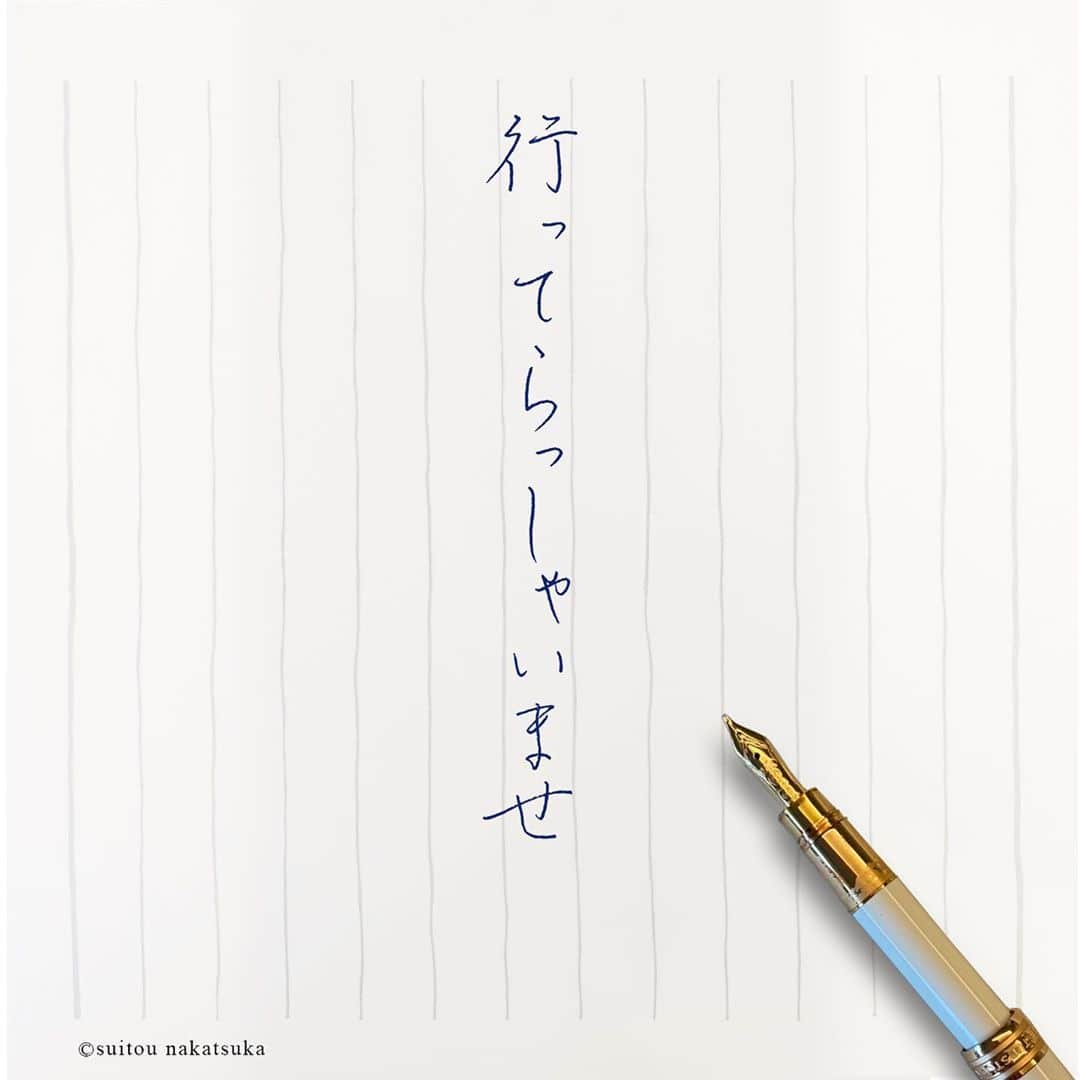 行ってらっしゃいませ
©suitou nakatsuka